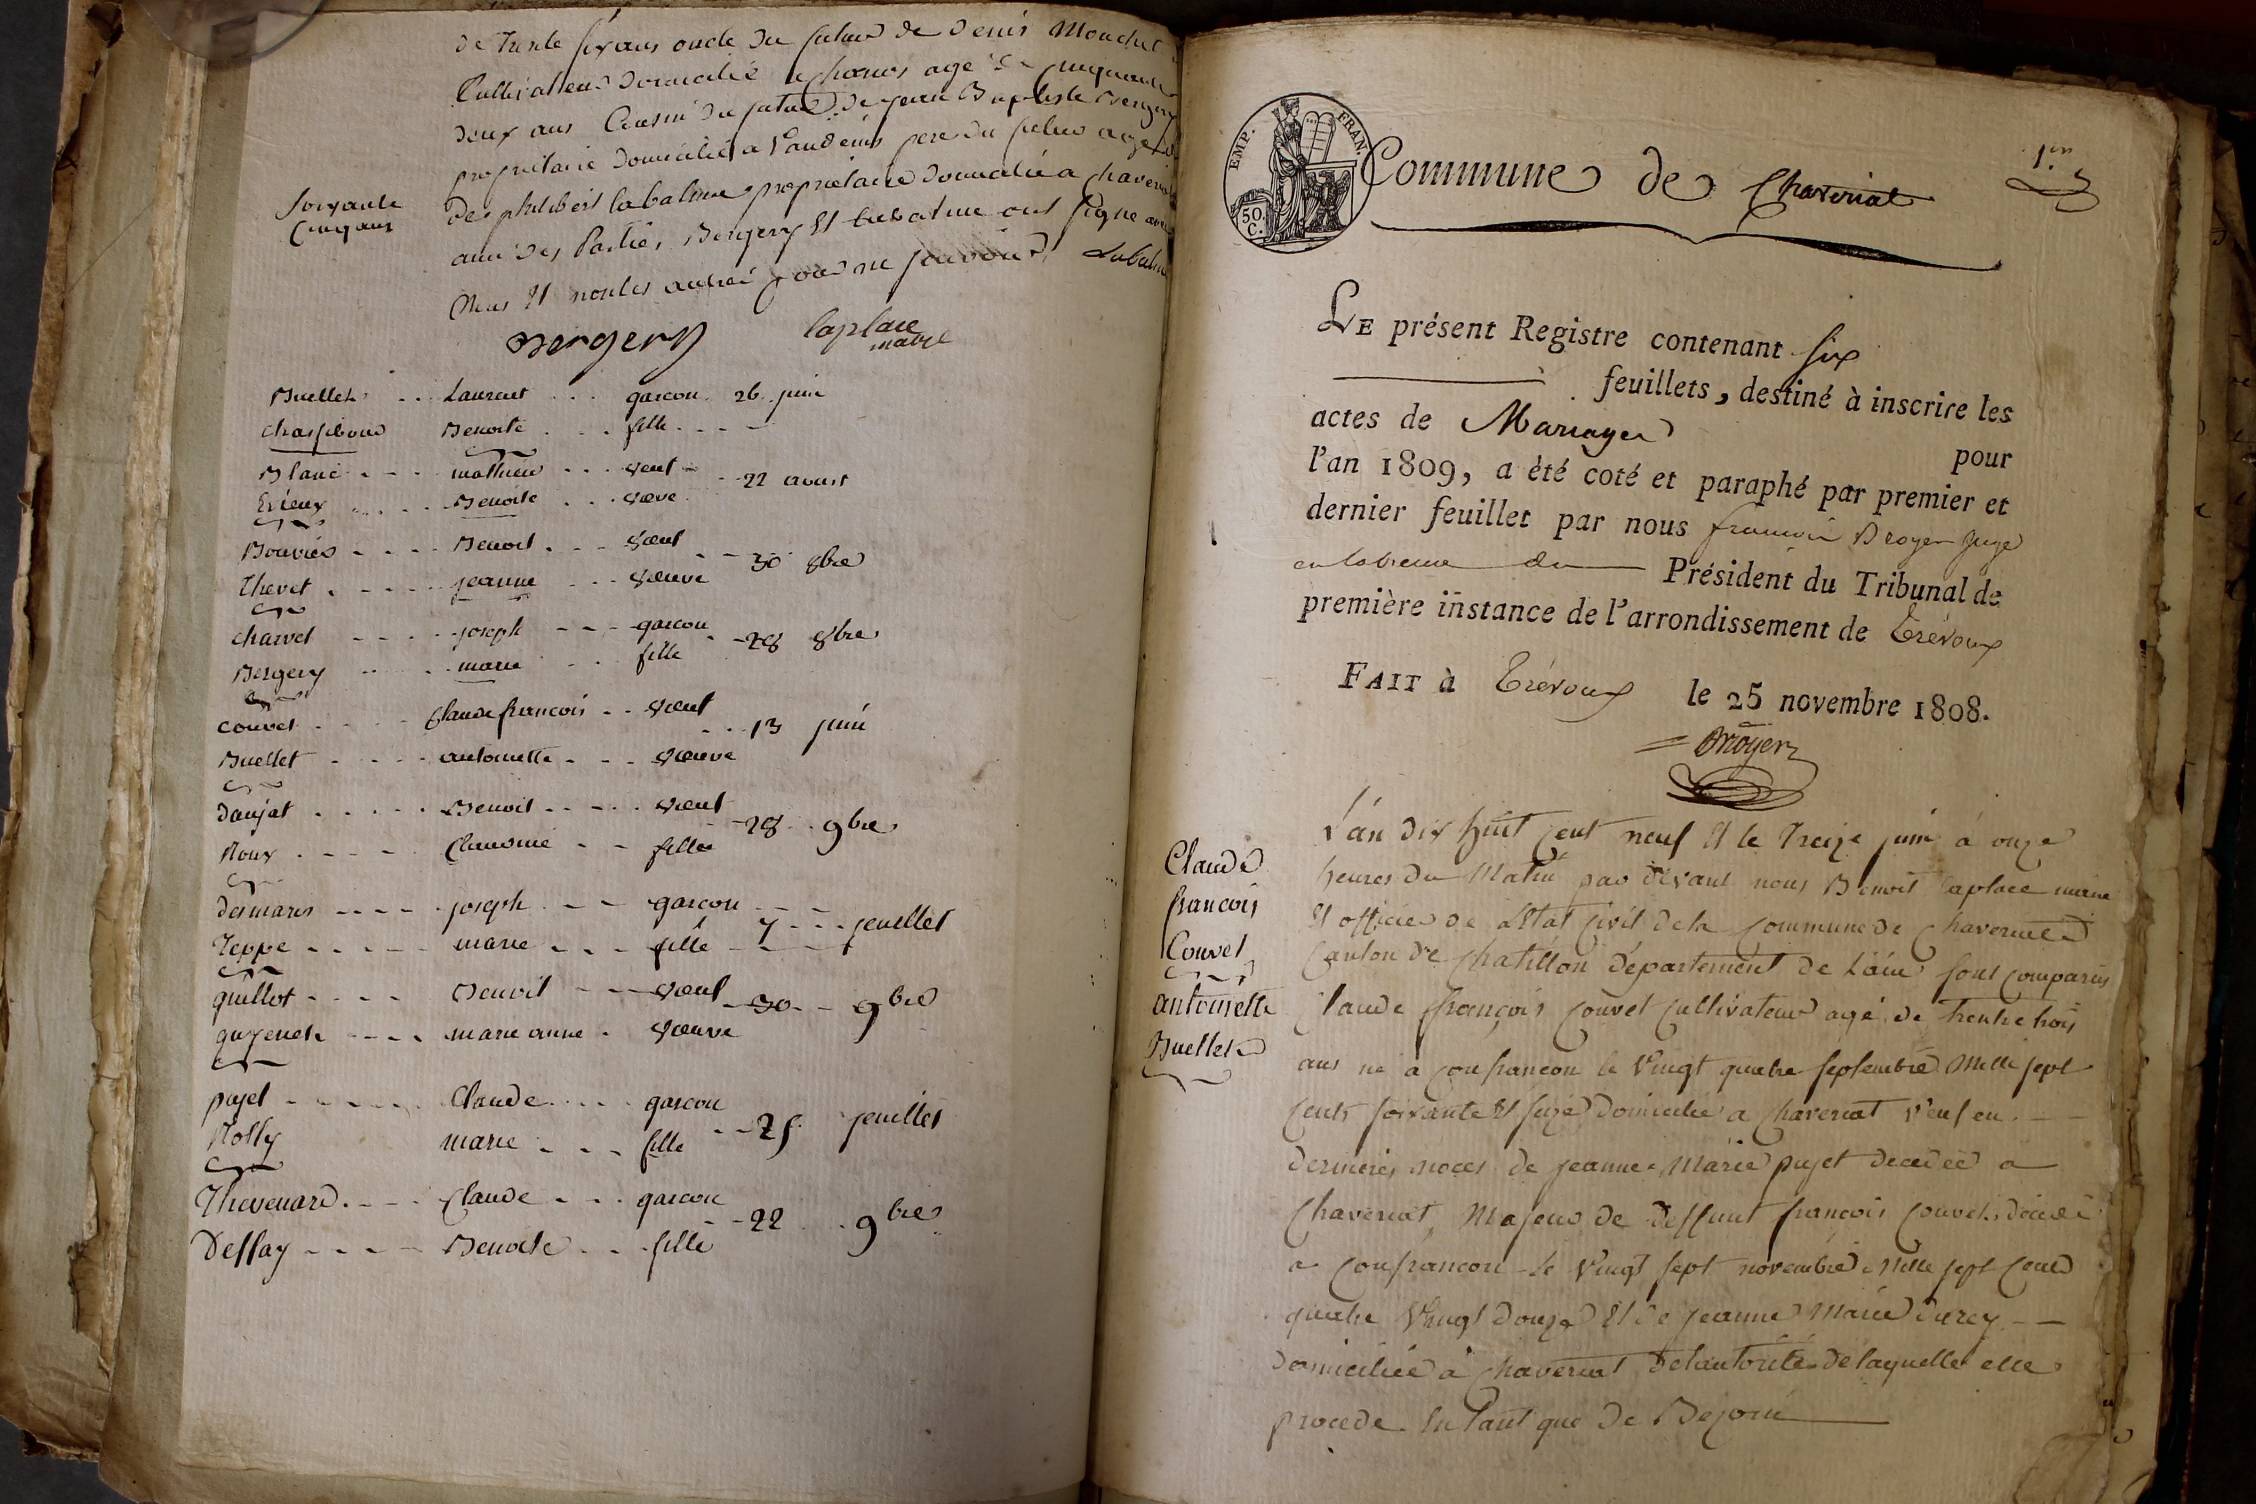 de trente six ans oncle du futur de denis Mouchet
Cultivateur domicilié a chanos agé de cinquante
deux ans Cousin du futur de jean Baptiste Bergery
proprietaire domicilié a Vandeins pere du futur agé de
Soixante
Cinq ans
de philibert labalme proprietaire domicilié a chaveriat
ami des Parties, Bergery et labalme ont signé avec
Nous et non les autres pour ne savoir Labalme
Bergery laplace
maire
Buellet . . Laurent . . . garcon . 26 . juin
Benoite . . . fille . . . -
Blanc . - - . mathieu . . . veuf - - 22 aoust
Erieux . . . . . Benoite . . . veve
Bouvier - - - - Benoit . - - veuf - - 30 8bre
Thevet . - - - - jeanne - - - veuve
charvet - - - - joseph - - - garcon - - 28 8bre
Bergery - - - . marie . . fille
couvet . - - - Claude francois . . veuf . . . 13 juin
Buellet - - - - antoinette . - - veuve
danjat . . . . . Benoit . . - - . veuf - 28 . . 9bre
Roux . - - - Claudine - - fille
desmaris - - - - joseph . - - garcon - - -
Teppe - - - - - marie - . - fille - 7 - - - jeuillet
guillot - - - - Benoit - - - veuf - 30 - - 9bre
guyenet - - - - marie anne . veuve
pujet - - - - - Claude . . . . garcon - - 25 jeuillet
Rolly marie . - . fille
Thevenard . - - - Claude - . . garcon - 22 . . 9bre
Deffay - - - - - Benoite . . . fille
EMP. FRAN.
50.
C.
Commune de Chaveriat 1.er
LE présent Registre contenant six
feuillets, destiné à inscrire les
actes de Mariages pour
l'an 1809, a été coté et paraphé par premier et
dernier feuillet par nous francois Broyer juge
en labsence du Président du Tribunal de
première instance de l'arrondissement de Trévoux
FAIT à Trévoux le 25 novembre 1808.
Broyer
Claude
francois
Couvet
antoinette
Buellet
L'an dix huit cent neuf et le treize juin à onze
heures du Matin par devant nous Benoit laplace maire
et officier de l'Etat Civil de la Commune de Chaveriat
Canton de Chatillon département de L'ain sont comparus
Claude françois Couvet Cultivateur agé de trente trois
ans né a Confrancon le Vingt quatre septembre Mille sept
Cents soixante et seize domicilié a Chaveriat veuf en - -
dernieres noces de jeanne Marie pujet decedée a
Chaveriat, Majeur de deffunt françois Couvet, décédé
a Confrancon le Vingt sept novembre Mille sept Cent
quatre Vingt douze et de jeanne Marie durey - -
domiciliée à Chaveriat de l'autorité de laquelle elle
procede en tant que de Besoin